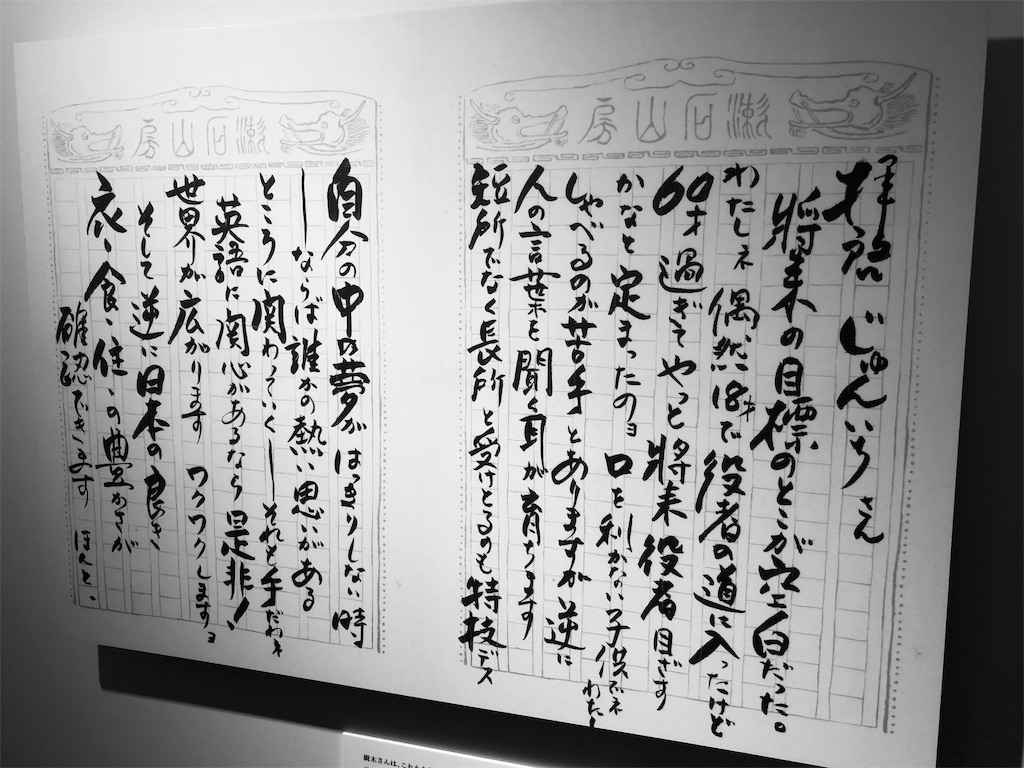 漱石山房
拝啓 じゅんいちさん
将来の目標のとこが空白だった。
わたしネ 偶然18才で役者の道に入ったけど
60才過ぎてやっと将来役者目ざす
かなと定まったのョ 口を利かない子供でネ わたし
しゃべるのが苦手とありますが逆に
人の言葉を聞く耳が育ちます
短所でなく長所と受けとるのも特技デス
漱石山房
自分の中の夢がはっきりしない時
―ならば誰かの熱い思いがある
ところに関わっていく―それも手だわネ
英語に関心があるなら是非!
世界が広がります ワクワクしますョ
そして逆に日本の良き
衣、食、住、の豊かさが
確認できます ほんと、
樹木さんは、これ